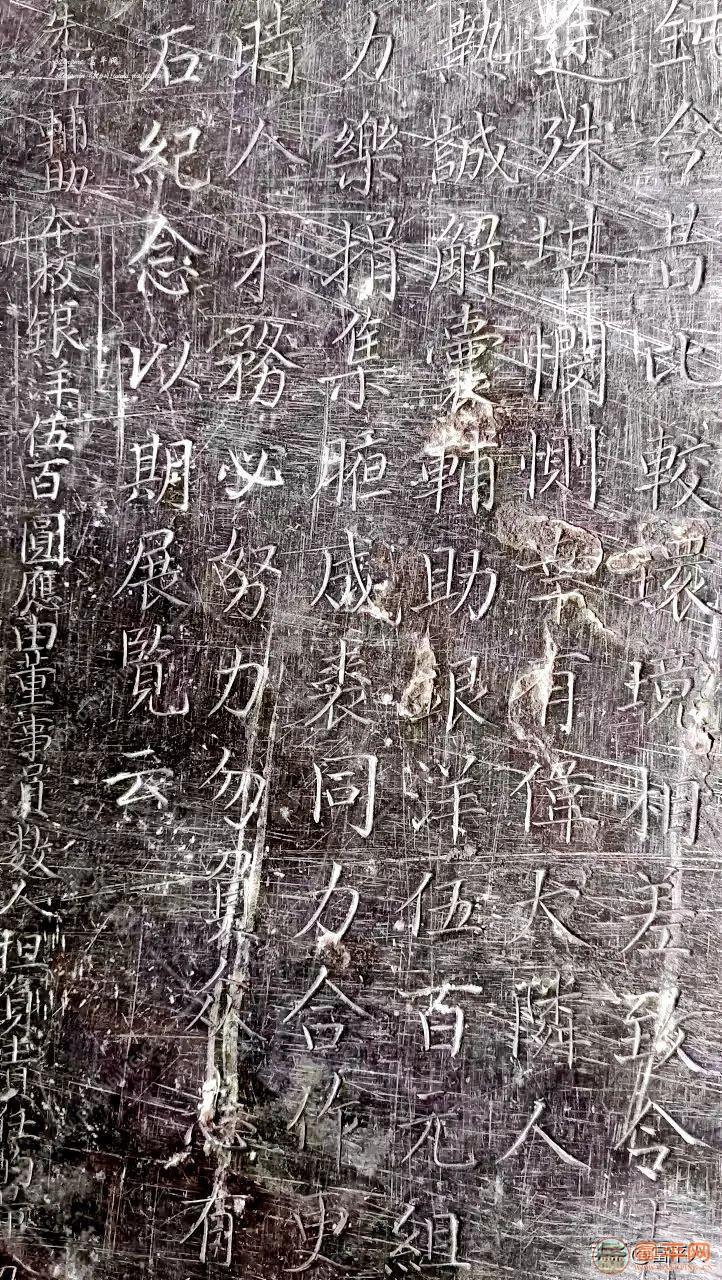 鈍今昔比較環境相差致令
途殊堪憫惻果有偉大隣人
熱誠解囊輔助銀洋伍百元組
力樂捐集腋成裘同力合作
時人才務必努力勿負有
后紀念以期展覧云
先輔助本校銀洋伍百圓應由董事員数人担責任
富平网